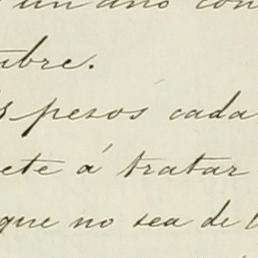 un año con
ubre.
s pesos cada
ete á tratar
que no sea de l